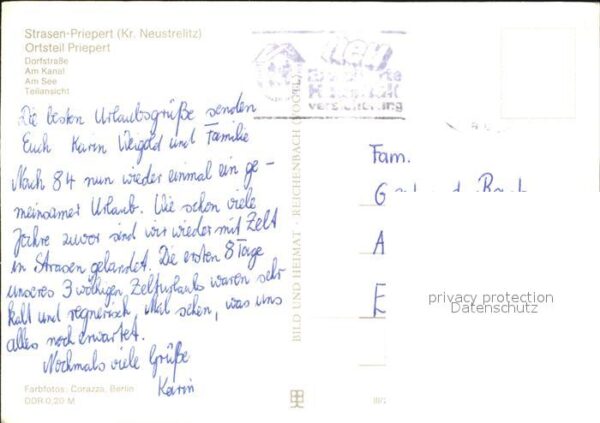 Strasen-Priepert (Kr. Neustrelitz)
Ortsteil Priepert
Dorfstraße
Am Kanal
Am See
Teilansicht
Die besten Urlaubsgrüße senden
Euch Karin Weigold und Familie
Nach 84 nun wieder einmal ein ge-
meinsamer Urlaub. Wie schon viele
Jahre zuvor sind wir wieder mit Zelt
in Strasen gelandet. Die ersten 8 Tage
unseres 3 wöchigen Zelturlaubs waren sehr
kalt und regnerisch, Mal sehen, was uns
alles noch erwartet.
Nochmals viele Grüße
Karin
Farbfotos: Corazza, Berlin
DDR 0,20 M
BILD UND HEIMAT · REICHENBACH (VOGTL)
neu
versicherung
Fam.
G
A
E
privacy protection
Datenschutz